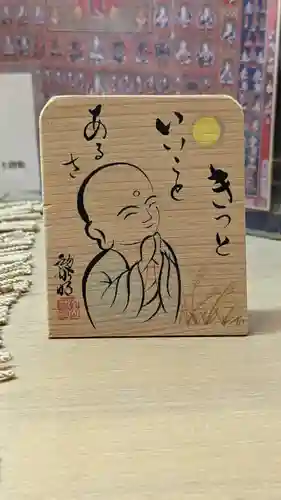 きっと
いいこと
あるさ